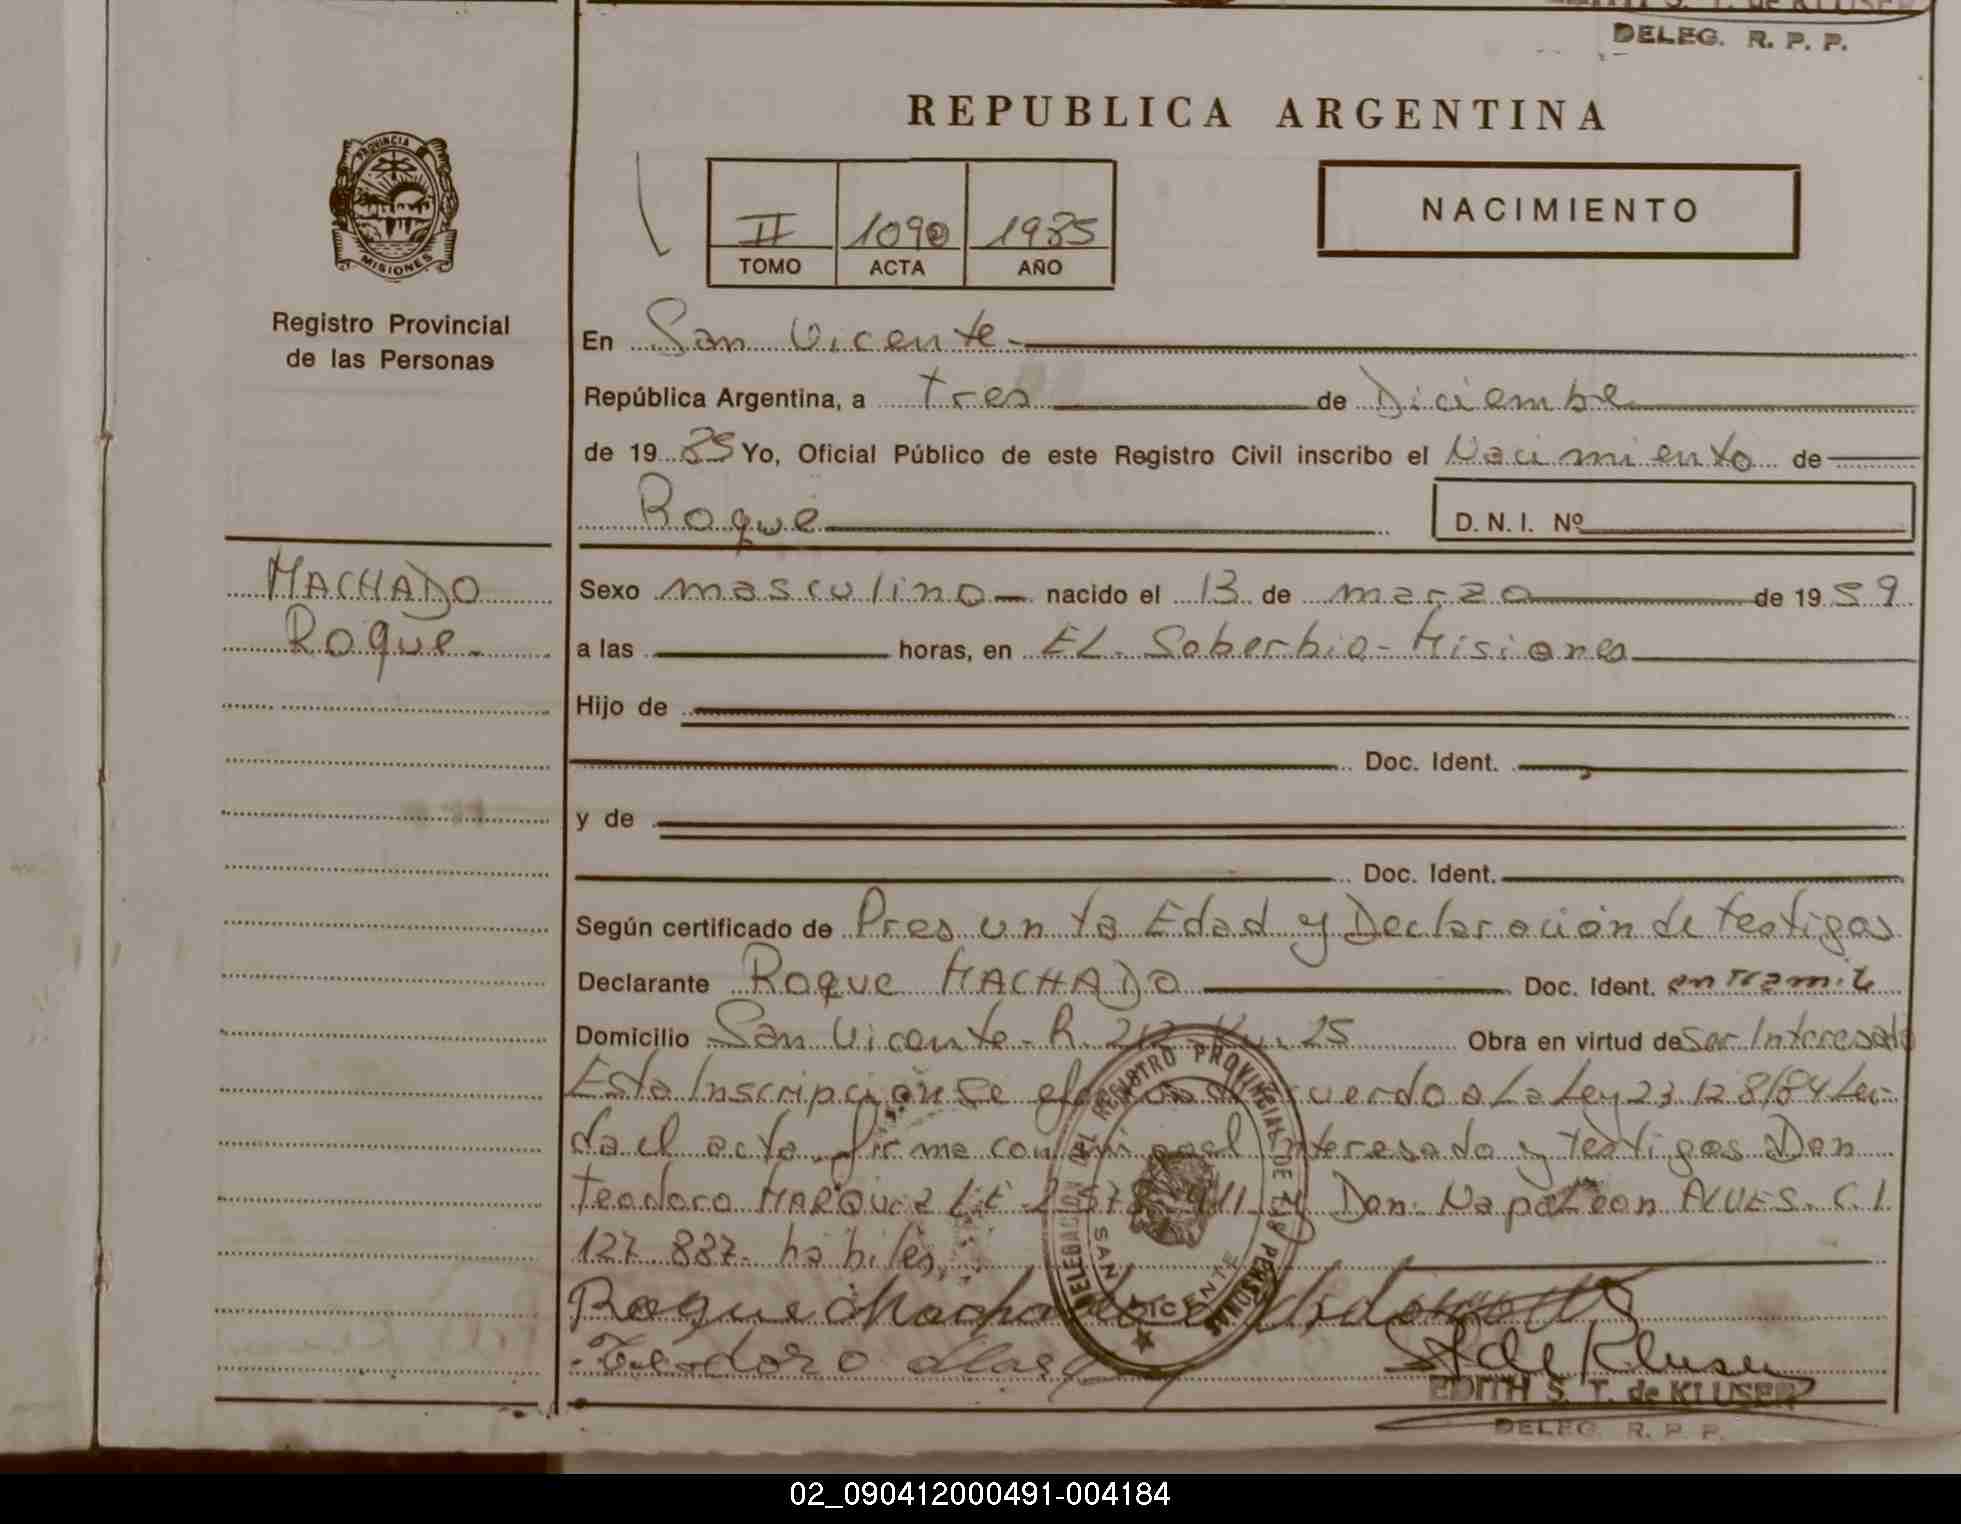 DELEG. R. P. P.
REPUBLICA ARGENTINA
PROVINCIA
MISIONES
Registro Provincial
de las Personas
II 1090 1985
TOMO ACTA AÑO
NACIMIENTO
En San Vicente
República Argentina, a tres de Diciembre
de 19 85 Yo, Oficial Público de este Registro Civil inscribo el Nacimiento de
Roque D. N. I. Nº
MACHADO
Roque
Sexo masculino nacido el 13 de marzo de 19 59
a las horas, en EL Soberbio - Misiones
Hijo de
Doc. Ident.
y de
Doc. Ident.
Según certificado de Presunta Edad y Declaración de testigos
Declarante Roque MACHADO Doc. Ident. en tramite
Domicilio San Vicente - R. 212 - Km. 25 Obra en virtud de Ser Interesado
Esta Inscripción se de acuerdo a La Ley 23.128/84 Lei-
da el acta firma conmigo el Interesado y testigos Don
Teodoro MARQUEZ L.E. y Don Napoleon ALVES. C.I.
127.887- habiles.
DELEGACION DEL REGISTRO PROVINCIAL DE LAS PERSONAS
SAN VICENTE
Roque Machado
Teodoro
S T de Kluser
EDITH S. T. de KLUSER
DELEG. R. P. P.
02_090412000491-004184